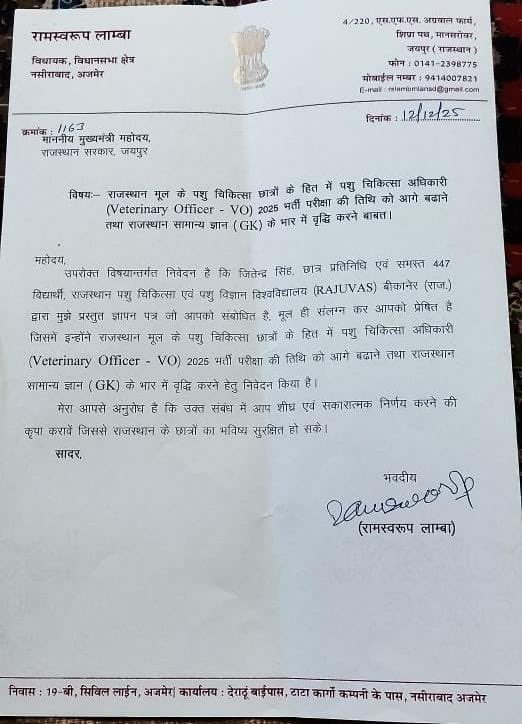 रामस्वरूप लाम्बा
विधायक, विधानसभा क्षेत्र
नसीराबाद, अजमेर
4/220, एस.एफ.एस. अग्रवाल फार्म,
शिप्रा पथ, मानसरोवर,
जयपुर (राजस्थान)
फोन : 0141-2398775
मोबाईल नम्बर : 9414007821
E-mail : relambmlansd@gmail.com
क्रमांक : 1163
दिनांक : 12/12/25
माननीय मुख्यमंत्री महोदय,
राजस्थान सरकार, जयपुर
विषयः– राजस्थान मूल के पशु चिकित्सा छात्रों के हित में पशु चिकित्सा अधिकारी
(Veterinary Officer - VO) 2025 भर्ती परीक्षा की तिथि को आगे बढाने
तथा राजस्थान सामान्य ज्ञान (GK) के भार में वृद्धि करने बाबत।
महोदय,
उपरोक्त विषयान्तर्गत निवेदन है कि जितेन्द्र सिंह, छात्र प्रतिनिधि एवं समस्त 447
विद्यार्थी, राजस्थान पशु चिकित्सा एवं पशु विज्ञान विश्वविद्यालय (RAJUVAS) बीकानेर (राज.)
द्वारा मुझे प्रस्तुत ज्ञापन पत्र जो आपको संबोधित है, मूल ही संलग्न कर आपको प्रेषित है
जिसमें इन्होंने राजस्थान मूल के पशु चिकित्सा छात्रों के हित में पशु चिकित्सा अधिकारी
(Veterinary Officer - VO) 2025 भर्ती परीक्षा की तिथि को आगे बढाने तथा राजस्थान
सामान्य ज्ञान (GK) के भार में वृद्धि करने हेतु निवेदन किया है।
मेरा आपसे अनुरोध है कि उक्त संबंध में आप शीघ्र एवं सकारात्मक निर्णय करने की
कृपा करावें जिससे राजस्थान के छात्रों का भविष्य सुरक्षित हो सके।
सादर,
भवदीय
(रामस्वरूप लाम्बा)
निवास : 19-बी, सिविल लाईन, अजमेर| कार्यालय : देराठूं बाईपास, टाटा कार्गो कम्पनी के पास, नसीराबाद अजमेर